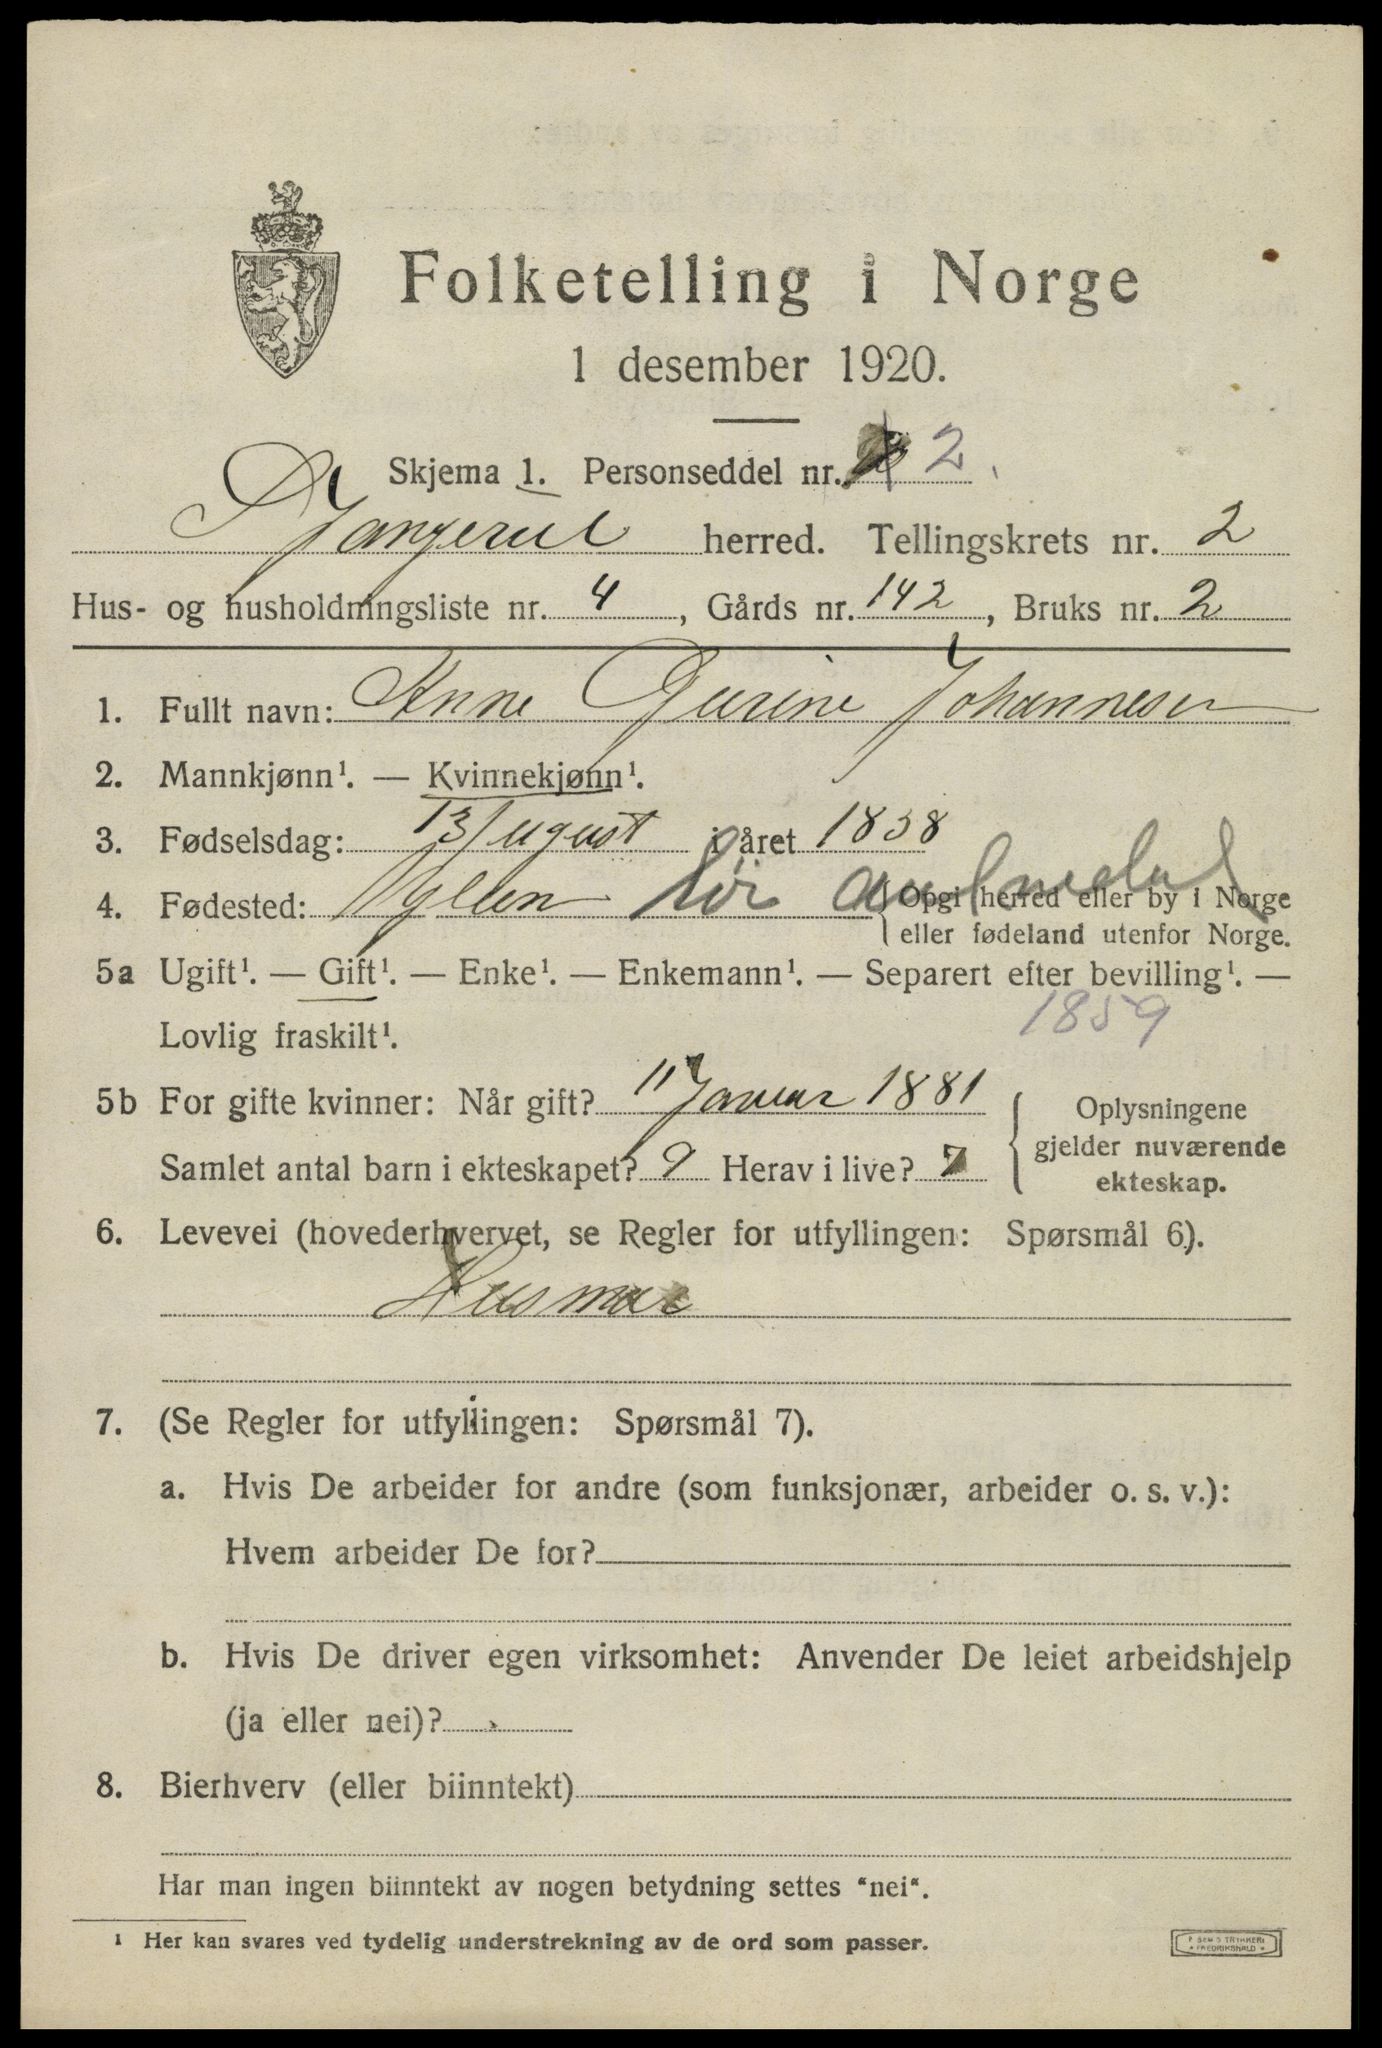 Folketelling i Norge
1 desember 1920.
Skjema 1. Personseddel nr. 2.
Stangerud herred. Tellingskrets nr. 2
Hus- og husholdningsliste nr. 4, Gårds nr. 142, Bruks nr. 2
1. Fullt navn: Anne Gurine Johannesen
2. Mannkjønn¹. — Kvinnekjønn¹.
3. Fødselsdag: 13 August i året 1858
4. Fødested: Sør Audnedal
Opgi herred eller by i Norge
eller fødeland utenfor Norge.
5a Ugift¹. — Gift¹. — Enke¹. — Enkemann¹. — Separert efter bevilling¹. —
Lovlig fraskilt¹. 1859
5b For gifte kvinner: Når gift? 11 Januar 1881
Samlet antal barn i ekteskapet? 9 Herav i live? 7
Oplysningene
gjelder nuværende
ekteskap.
6. Levevei (hovederhvervet, se Regler for utfyllingen: Spørsmål 6).
Husmor
7. (Se Regler for utfyllingen: Spørsmål 7).
a. Hvis De arbeider for andre (som funksjonær, arbeider o. s. v.):
Hvem arbeider De for?
b. Hvis De driver egen virksomhet: Anvender De leiet arbeidshjelp
(ja eller nei)?
8. Bierhverv (eller biinntekt)
Har man ingen biinntekt av nogen betydning settes "nei".
¹ Her kan svares ved tydelig understrekning av de ord som passer.